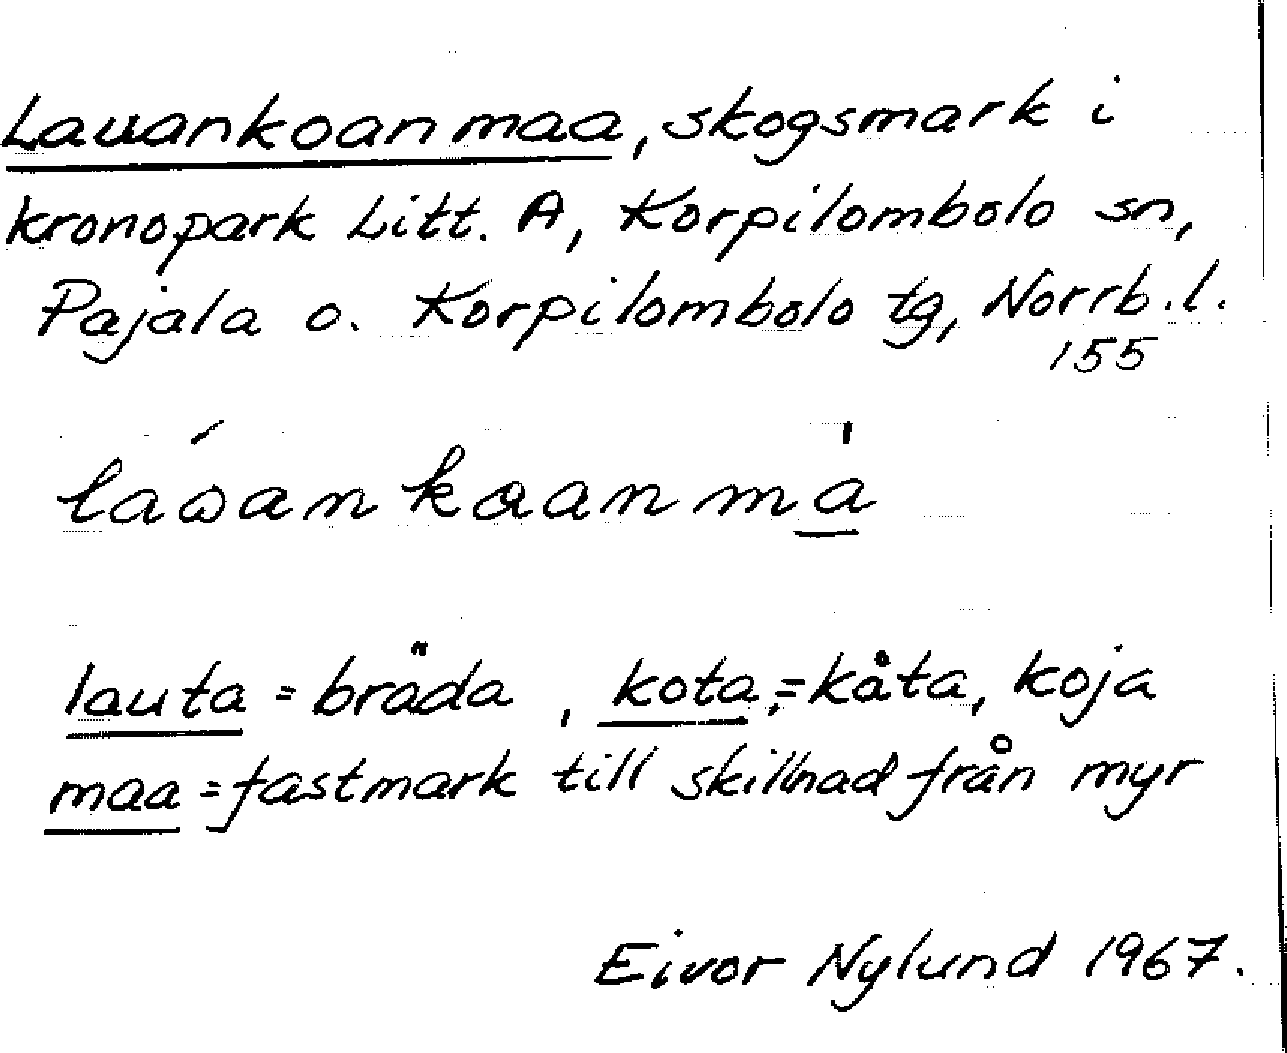 Lauankoanmaa, skogsmark i
kronopark Litt. A, Korpilombolo sn,
Pajala o. Korpilombolo tg, Norrb.l.
155
láωankoanmà̱
lauta = bräda, kota,=kåta, koja
maa = fastmark till skillnad från myr
Eivor Nylund 1967.